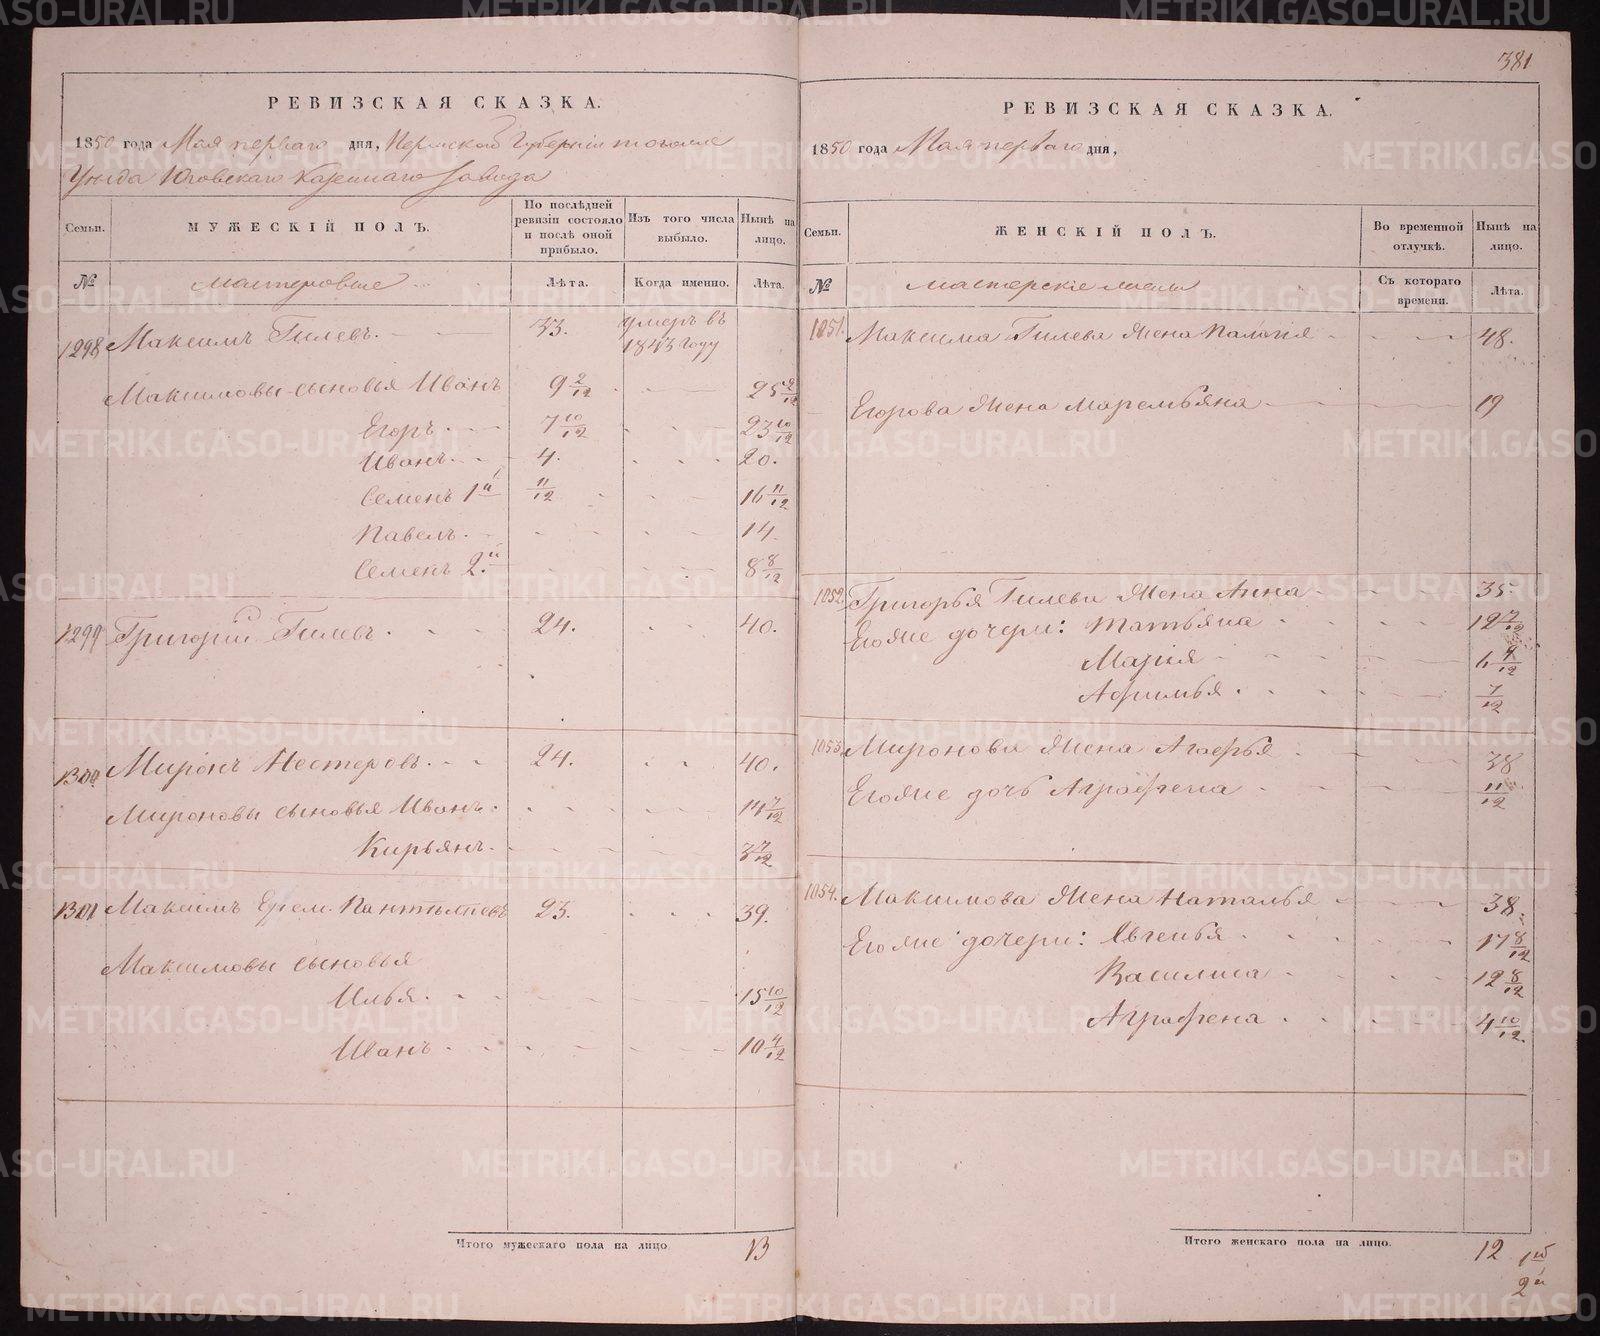 381
РЕВИЗСКАЯ СКАЗКА.
1850 года Мая перваго дня, Пермской Губернiи тогоже
Уезда Юговскаго Казеннаго завода
Семьи.
МУЖЕСКIЙ ПОЛЪ.
По послѣдней ревизiи состояло и послѣ оной прибыло.
Изъ того числа выбыло.
Нынѣ на лицо.
№ мастеровые Лѣта. Когда именно. Лѣта.
1298 Максимъ Гилевъ. 33. умеръ въ 1843 году
Максимовы сыновья Иванъ 9 2/12 25 2/12
Егоръ 7 10/12 23 10/12
Иванъ 4. 20.
Семенъ 1й 11/12 16 11/12
Павелъ. 14.
Семенъ 2й 8 8/12
1299 Григорiй Гилевъ. 24. 40.
1300 Миронъ Нестеровъ. 24. 40.
Мироновы сыновья Иванъ. 14 7/12
Кирьянъ. 3 7/12
1301 Максимъ Ерем. 23. 39.
Максимовы сыновья
Илья. 15 10/12
Иванъ 10 4/12
Итого мужескаго пола на лицо 13
РЕВИЗСКАЯ СКАЗКА.
1850 года Мая перваго дня,
Семьи.
ЖЕНСКIЙ ПОЛЪ.
Во временной отлучкѣ.
Нынѣ на лицо.
№ мастерскiе Съ котораго времени. Лѣта.
1051. Максима Гилева жена Палагiя 48.
Егорова жена Маремьяна 19
1052. Григорья Гилева жена Анна 35
Его же дочери: Татьяна 12 7/12
Марiя 6 4/12
Афимья. 7/12
1053. Миронова жена Агафья 38
Его же дочь Аграфена 11/12
1054. Максимова жена Наталья 38.
Его же дочери: Евгенья 17 8/12
Василиса 12 8/12
Аграфена 4 10/12.
Итого женскаго пола на лицо. 12
METRIKI.GASO-URAL.RU